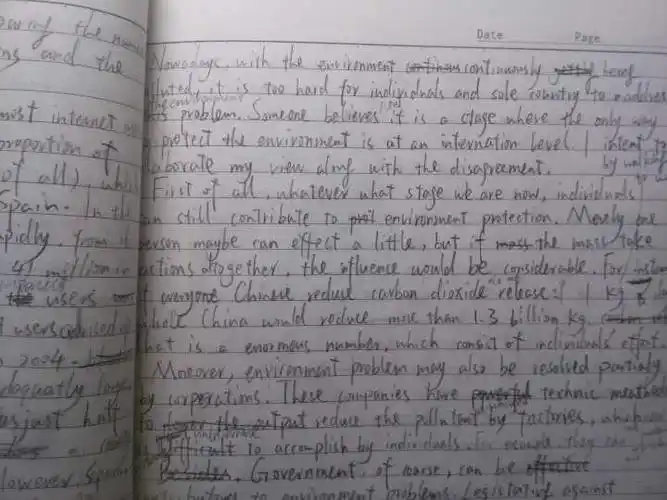 Date Page
the
ns and the
most internet
proportion of
of all), whil
Spain. In the
pidly, from
41 million in
users
users
2004
adequatly large
as just half
However, Spain
Nowadays, with the environment continuously being
lluted, it is too hard for individuals and sole country to address
the environment
is problem. Someone believes it is a stage where the only way
protect the environment is at an internation level. I intent to
aborate my view along with the disagreement.
First of all, whatever what stage we are now, individuals
by
an still contribute to environment protection. Merely one
erson maybe can effect a little, but if the mass take
actions altogether, the influence would be considerable. For instan
f everyone Chinese reduce carbon dioxide release 1 kg
whole China would reduce more than 1.3 billion kg
hat is a enormous number, which consist of individuals' effort.
Moreover, environment problem may also be resolved partialy
by corperations. These companies have technic
to reduce the pollutant by factories, which
is difficult to accomplish by individuals. For example they can
Government, of course, can be
to environment problems. Legislation against